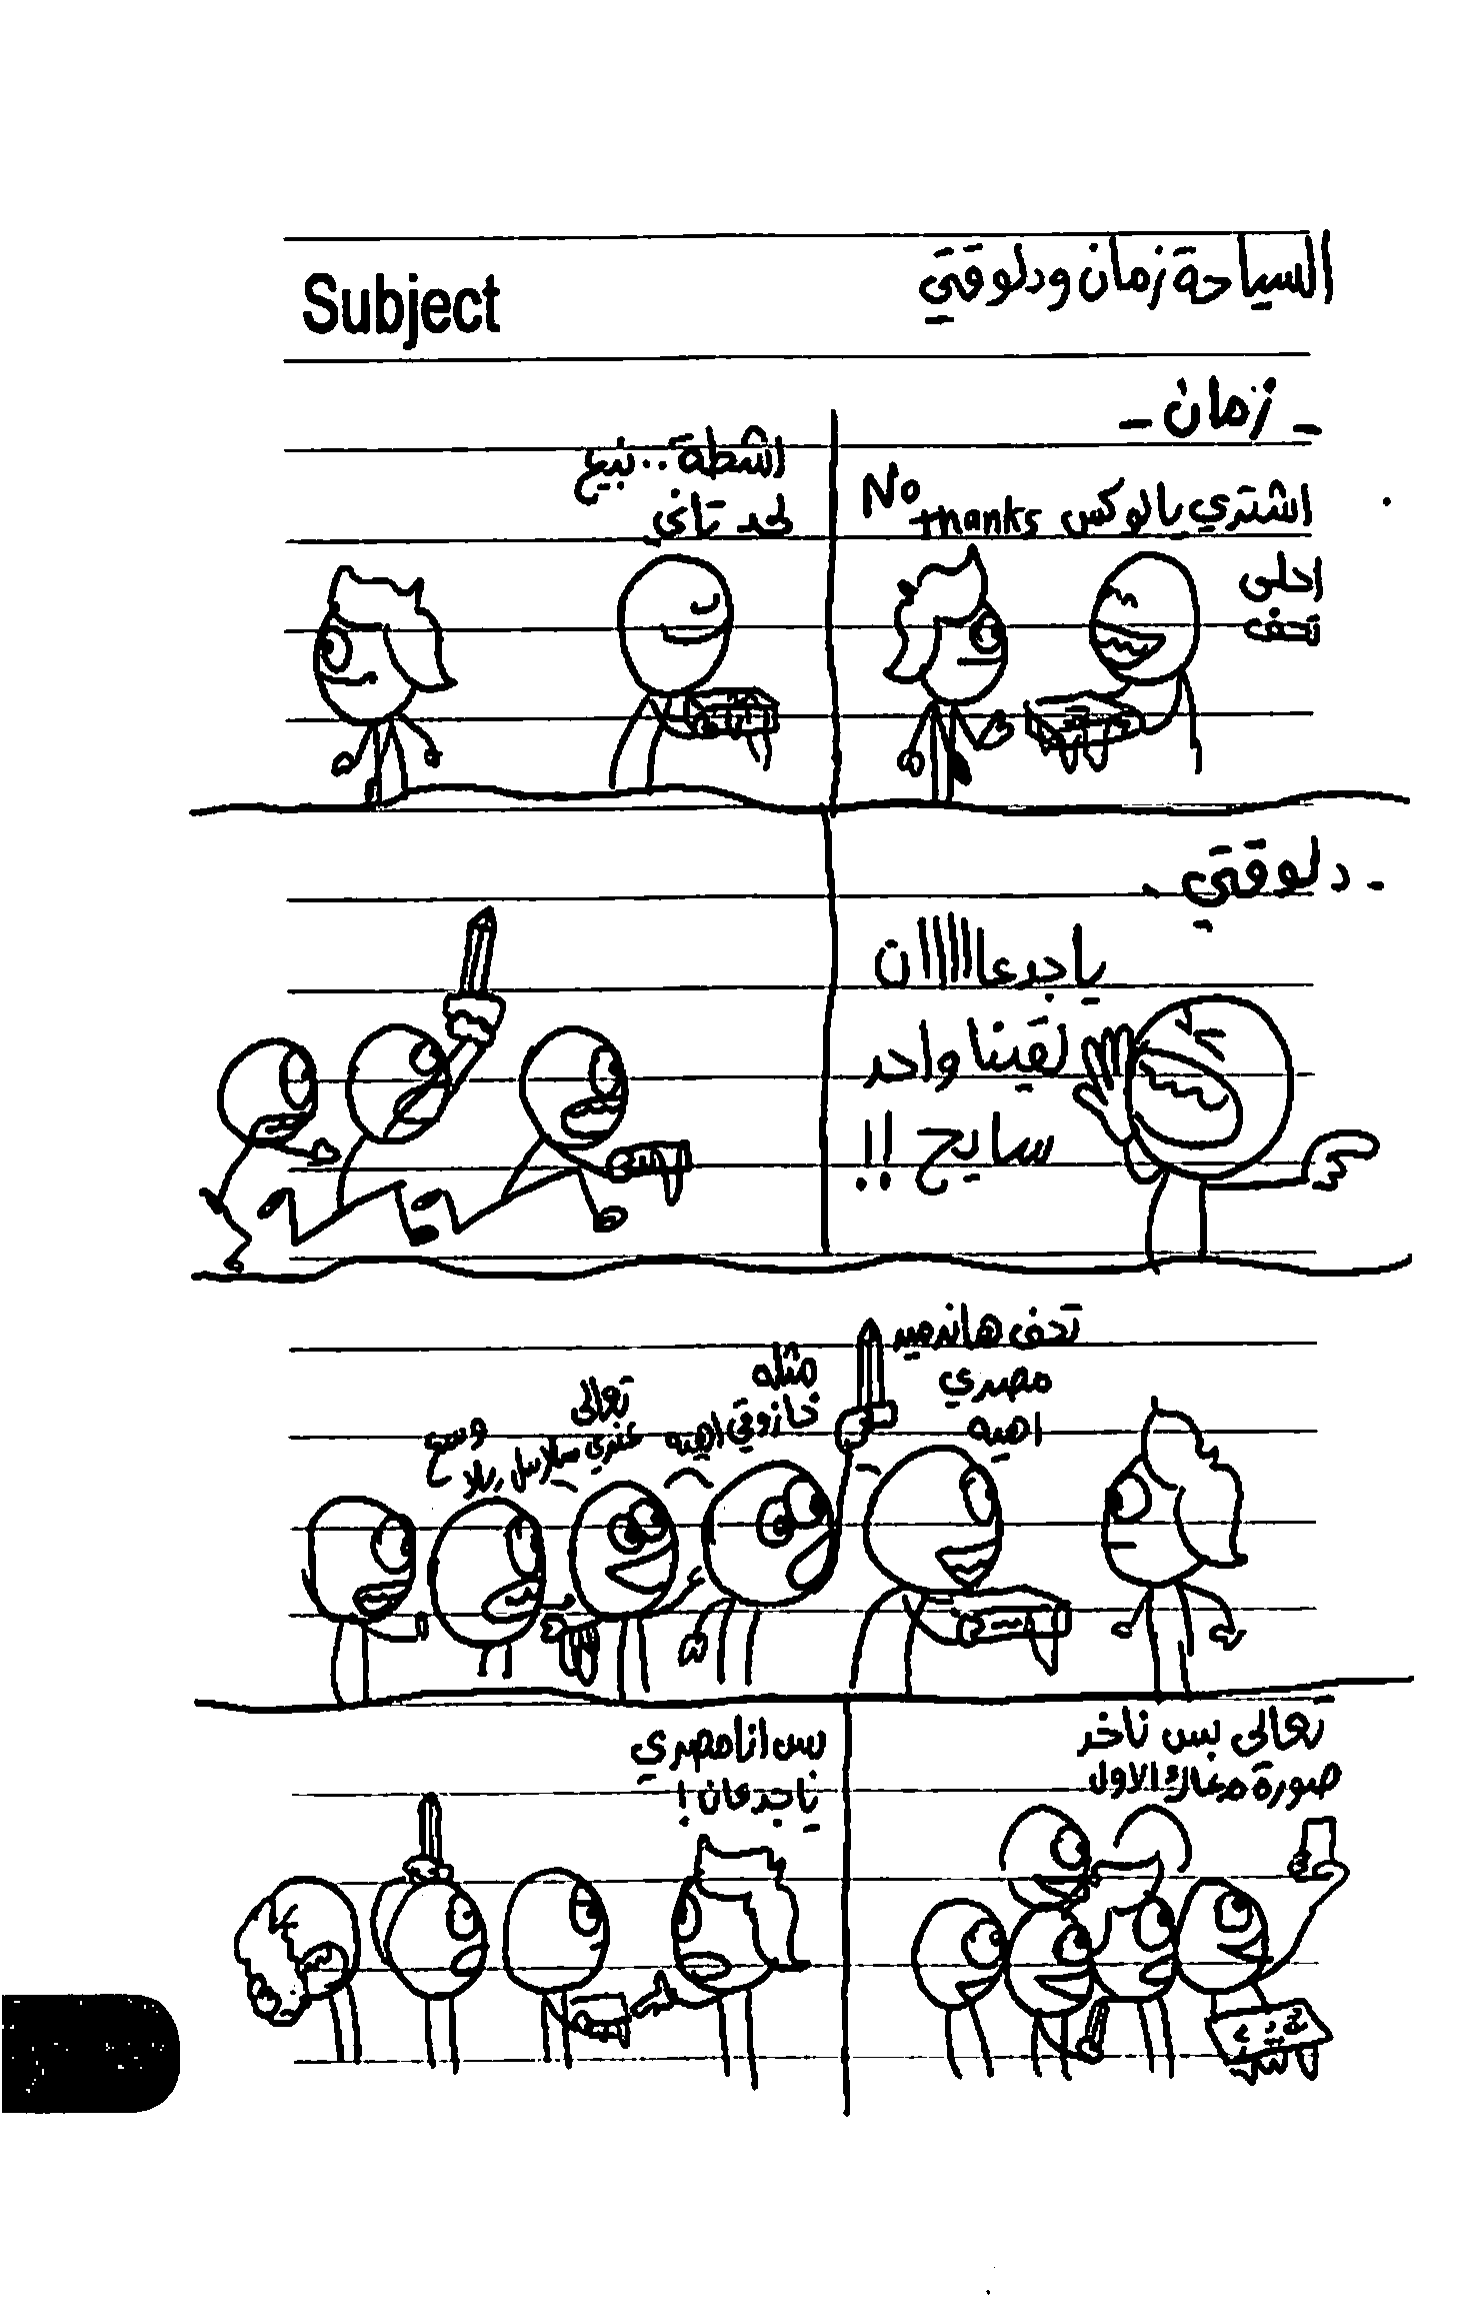 السياحة زمان ودلوقتي
Subject
- زمان -
اشتري يا لوكس
احلى
تحف
No
thanks
اشطة.. نبيع
لحد تاني
- دلوقتي -
يا جدعااااااان
لقينا واحد
سايح !!
تحف هاندميد
مصري
اهيه
مثله
خازوقي اهيه
تعالى
عندي سلاسل
وسع
تعالى بس ناخد
صورة معاك الاول
بس انا مصري
يا جدعان !